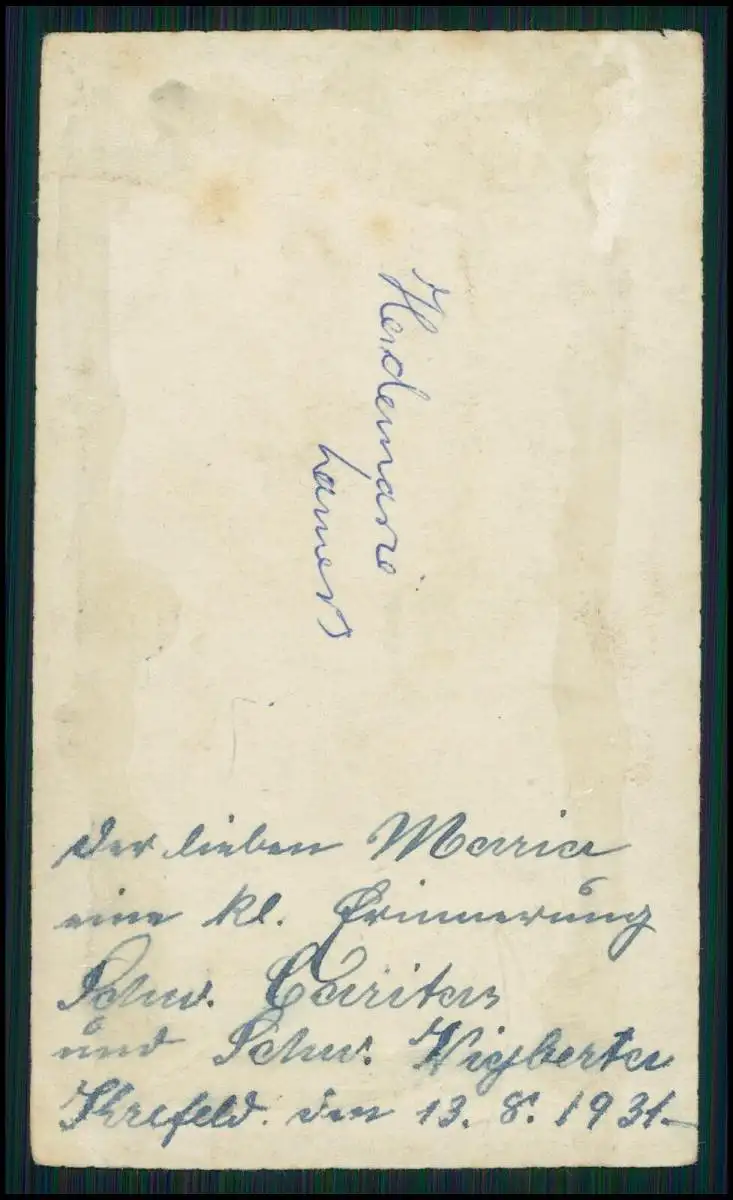 Heidemarie
Lamers
Der lieben Maria
eine kl. Erinnerung
Schw. Caritas
und Schw. Wigberta
Krefeld. den 13. 8. 1931.